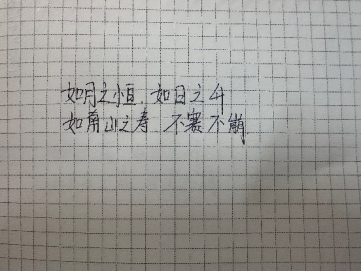 如月之恒,如日之升
如南山之寿 不骞不崩